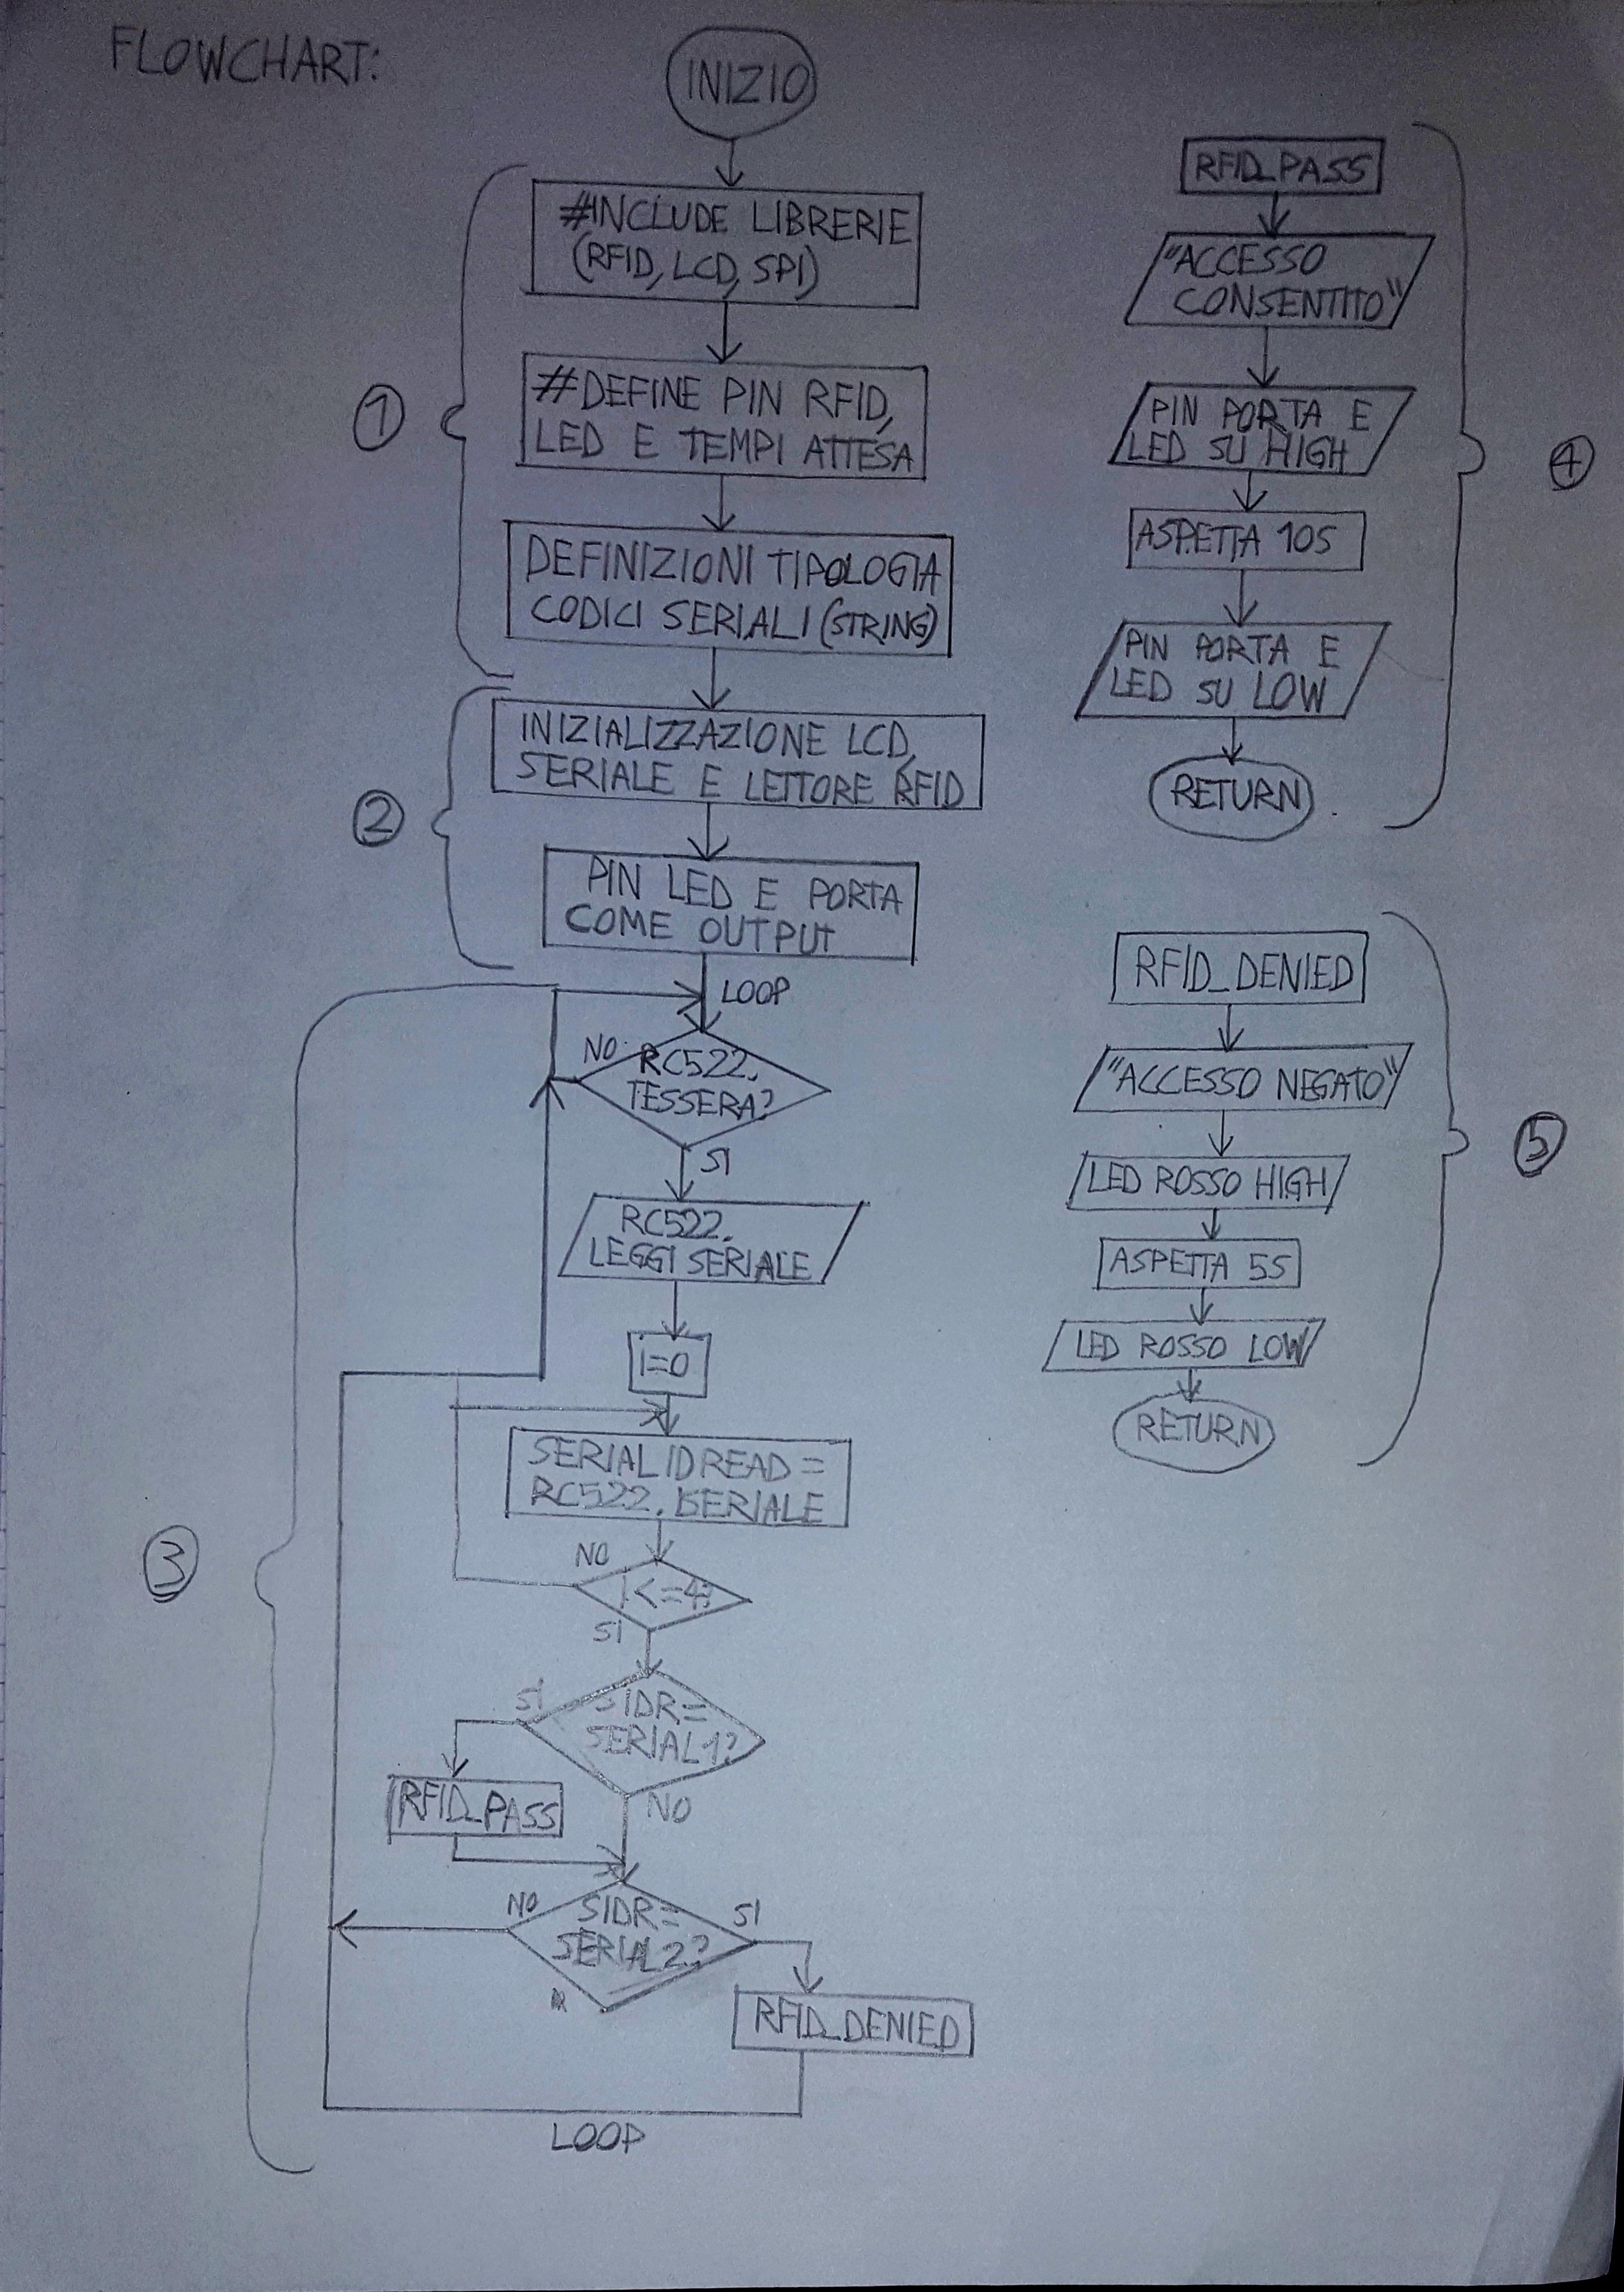 FLOWCHART:
INIZIO
#INCLUDE LIBRERIE
(RFID, LCD, SPI)
#DEFINE PIN RFID,
LED E TEMPI ATTESA
DEFINIZIONI TIPOLOGIA
CODICI SERIALI (STRING)
1
INIZIALIZZAZIONE LCD,
SERIALE E LETTORE RFID
PIN LED E PORTA
COME OUTPUT
2
LOOP
NO
RC522.
TESSERA?
SI
RC522.
LEGGI SERIALE
I=0
SERIALIDREAD =
RC522. SERIALE
NO
I<=4?
SI
SI
SIDR=
SERIAL1?
NO
RFID_PASS
NO
SIDR=
SERIAL2?
SI
RFID_DENIED
LOOP
3
RFID_PASS
"ACCESSO
CONSENTITO"
PIN PORTA E
LED SU HIGH
ASPETTA 10S
PIN PORTA E
LED SU LOW
RETURN
4
RFID_DENIED
"ACCESSO NEGATO"
LED ROSSO HIGH
ASPETTA 5S
LED ROSSO LOW
RETURN
5